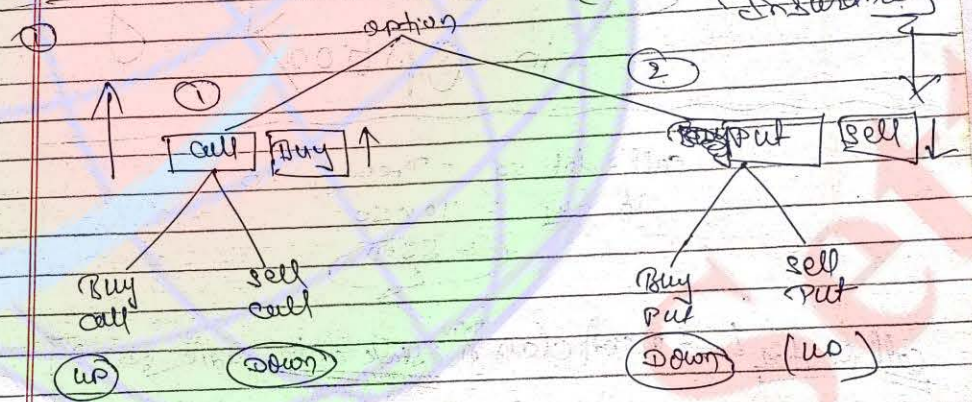 ①
option
①
②
Call Buy ↑
Put Sell ↓
Buy Call
Sell Call
Buy Put
Sell Put
UP
Down
Down
(UP)